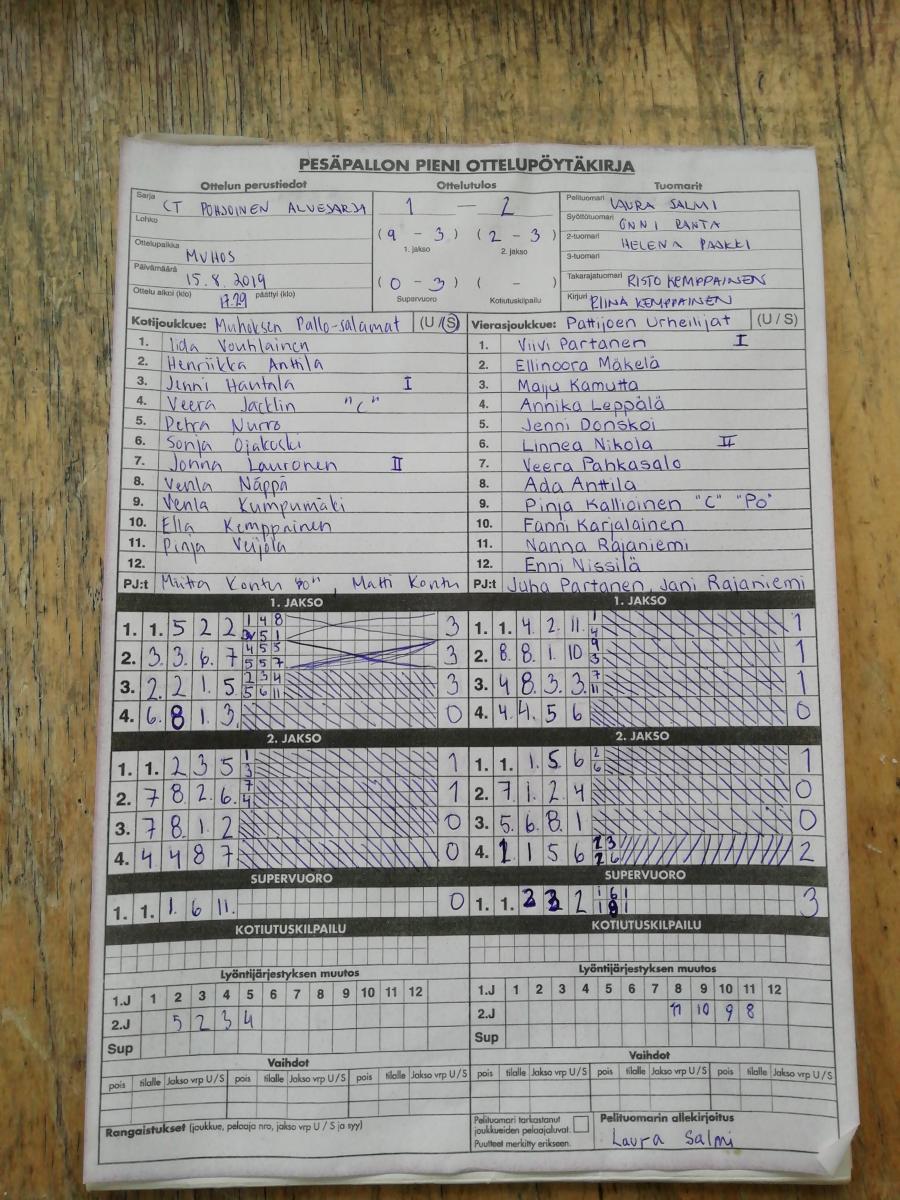 PESÄPALLON PIENI OTTELUPÖYTÄKIRJA
Ottelun perustiedot Ottelutulos Tuomarit
Sarja CT POHJOINEN ALUESARJA
Lohko
Ottelupaikka MUHOS
Päivämäärä 15.8.2019
Ottelu alkoi (klo) 17.29 päättyi (klo)
1 — 2
( 9 - 3 ) ( 2 - 3 )
1. jakso 2. jakso
( 0 - 3 ) ( - )
Supervuoro Kotiutuskilpailu
Pelituomari LAURA SALMI
Syöttötuomari ONNI RANTA
2-tuomari HELENA PASKKI
3-tuomari
Takarajatuomari RISTO KEMPPAINEN
Kirjuri RIINA KEMPPAINEN
Kotijoukkue: Muhoksen Pallo-salamat (U/S)
1. Iida Vouhlainen
2. Henriikka Anttila
3. Jenni Hautala I
4. Veera Jacklin "C"
5. Petra Nurro
6. Sonja Ojakoski
7. Jonna Lauronen II
8. Venla Näppä
9. Venla Kumpumäki
10. Ella Kemppainen
11. Pinja Veijola
12.
PJ:t Miitta Kontu "PO", Matti Kontu
Vierasjoukkue: Pattijoen Urheilijat (U/S)
1. Viivi Partanen I
2. Ellinoora Mäkelä
3. Maiju Kamutta
4. Annika Leppälä
5. Jenni Donskoi
6. Linnea Nikola II
7. Veera Pahkasalo
8. Ada Anttila
9. Pinja Kallioinen "C" "Po"
10. Fanni Karjalainen
11. Nanna Rajaniemi
12. Enni Nissilä
PJ:t Juha Partanen, Jani Rajaniemi
1. JAKSO
1. 1. 5 2 2 3
2. 3. 3. 6. 7 3
3. 2. 2 1. 5 3
4. 6. 8 1. 3. 0
2. JAKSO
1. 1. 2 3 5 1 3 1
2. 7 8 2. 6. 7 4 1
3. 7 8. 1. 2 0
4. 4 4 8 7. 0
SUPERVUORO
1. 1. 1. 6 11. 0
KOTIUTUSKILPAILU
1. JAKSO
1. 1. 4. 2. 11. 1 4 1
2. 8. 8. 1. 10 9 3 1
3. 4 8. 3. 3. 7 11 1
4. 4. 4. 5 6 0
2. JAKSO
1. 1. 1. 5 6 2 6 1
2. 7 1. 2 4 0
3. 5. 6. 8. 1 0
4. 1 1 5 6 2
SUPERVUORO
1. 1. 2 2 2 3
KOTIUTUSKILPAILU
Lyöntijärjestyksen muutos
1.J 1 2 3 4 5 6 7 8 9 10 11 12
2.J 5 2 3 4
Sup
Vaihdot
pois tilalle Jakso vrp U/S pois tilalle Jakso vrp U/S pois tilalle Jakso vrp U/S
Lyöntijärjestyksen muutos
1.J 1 2 3 4 5 6 7 8 9 10 11 12
2.J 11 10 9 8
Sup
Vaihdot
pois tilalle Jakso vrp U/S pois tilalle Jakso vrp U/S pois tilalle Jakso vrp U/S
Rangaistukset (joukkue, pelaaja nro, jakso vrp U / S ja syy)
Pelituomari tarkastanut
joukkueiden pelaajaluvat.
Puutteet merkitty erikseen.
Pelituomarin allekirjoitus
Laura Salmi